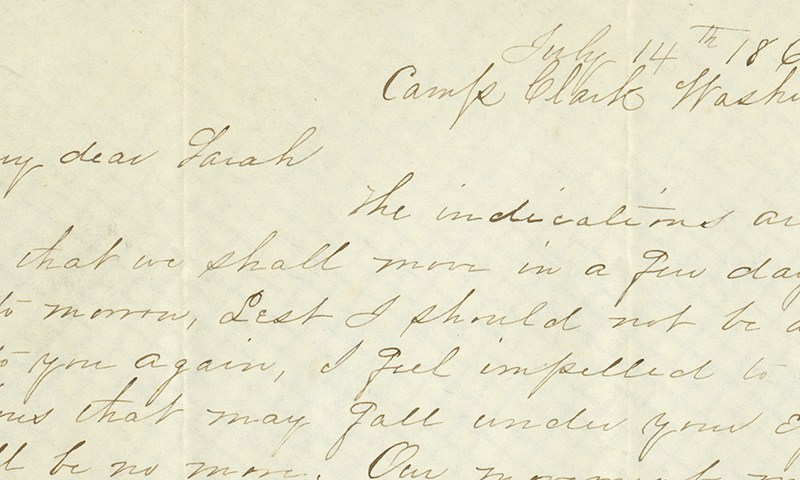 July 14th 186
Camp Clark Washi
my dear Sarah
The indications a
that we shall move in a few day
to morrow, Lest I should not be a
to you again, I feel impelled to
that may fall under your e
ll be no more. Our movement m